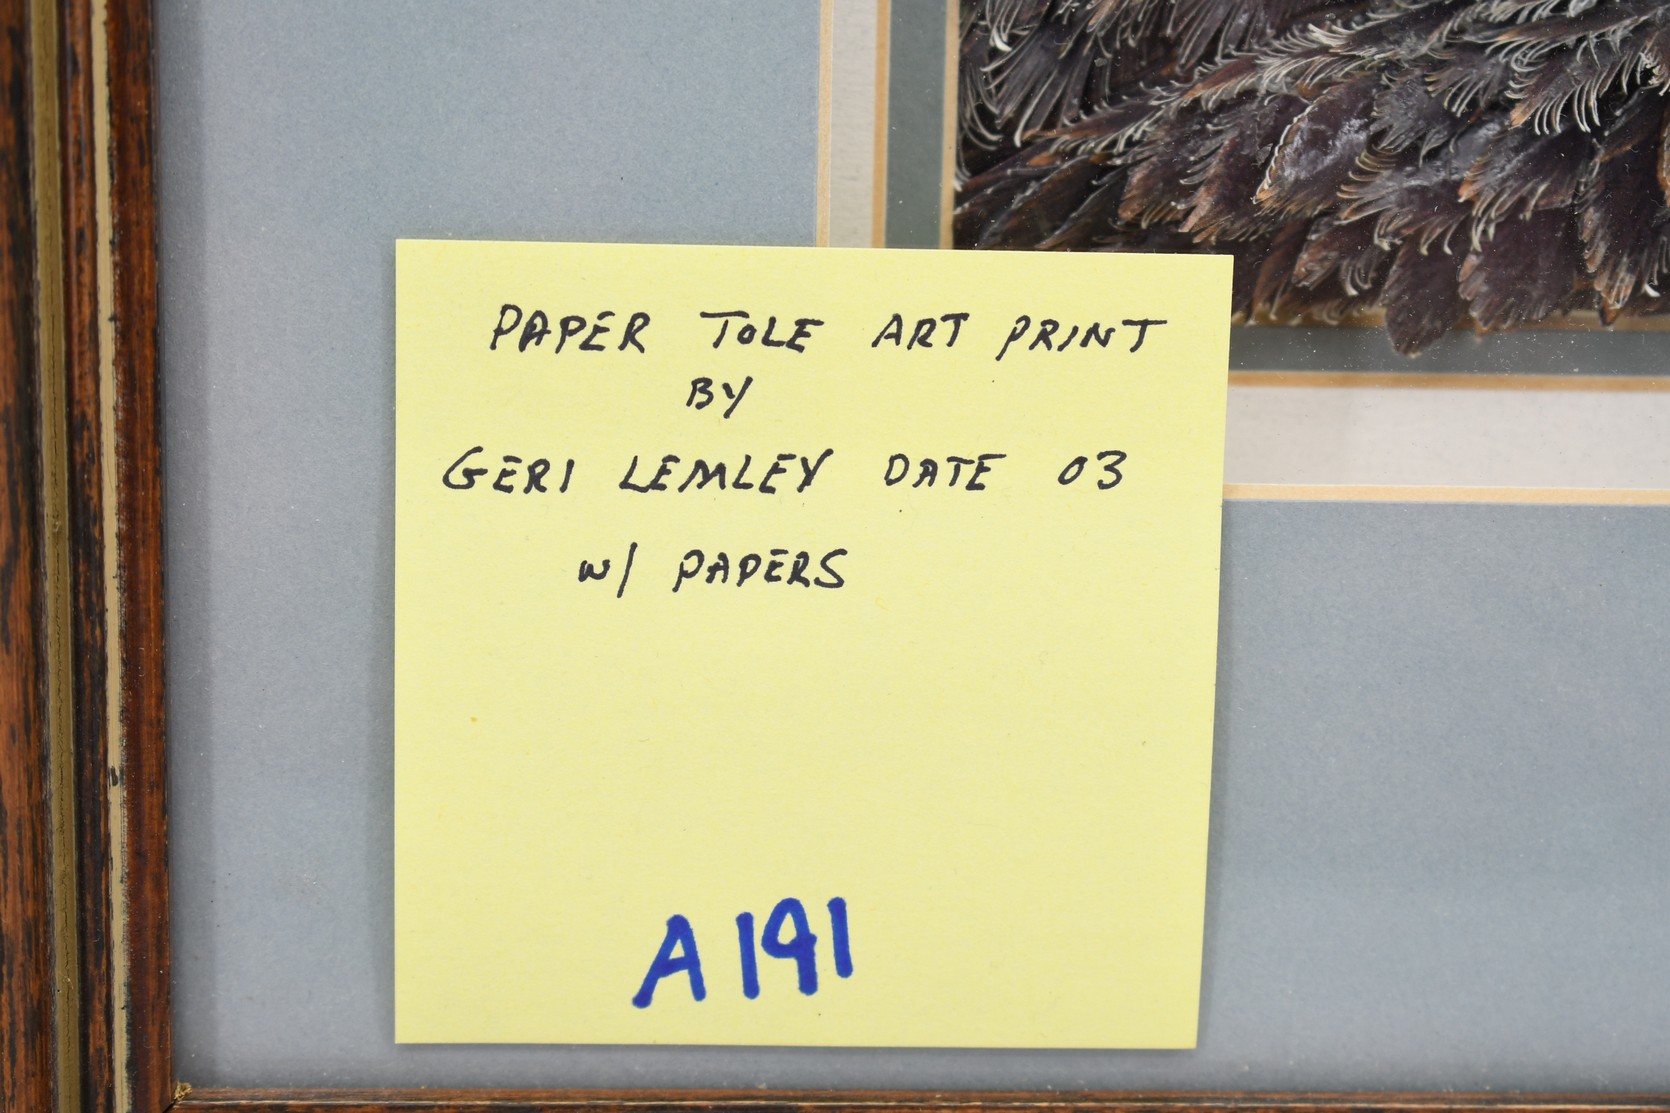 PAPER TOLE ART PRINT
BY
GERI LEMLEY DATE 03
W/ PAPERS
A191